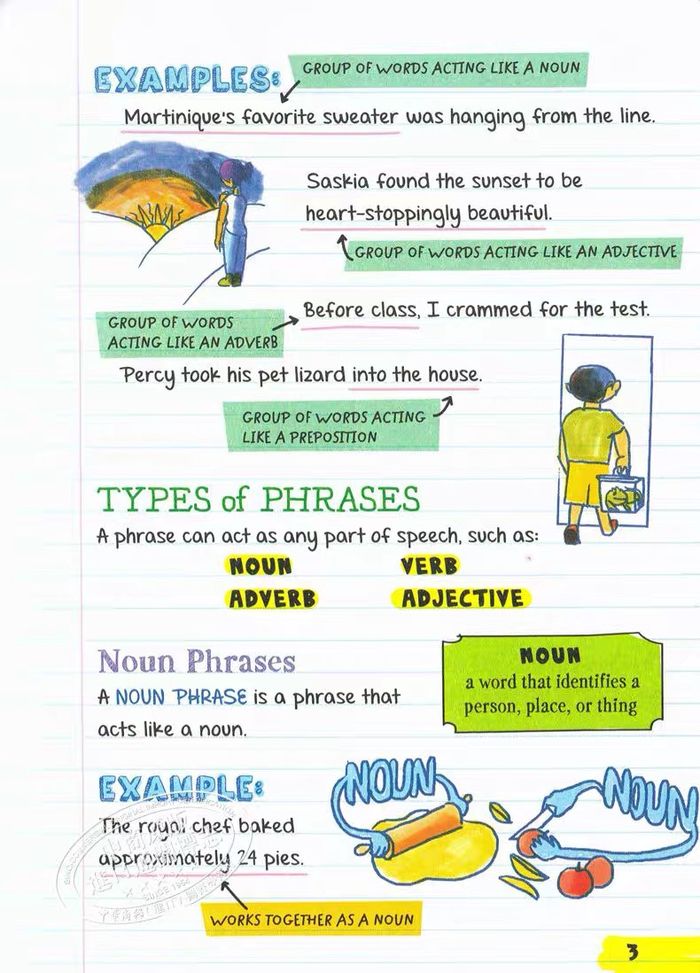 EXAMPLES:
GROUP OF WORDS ACTING LIKE A NOUN
Martinique's favorite sweater was hanging from the line.
Saskia found the sunset to be
heart-stoppingly beautiful.
GROUP OF WORDS ACTING LIKE AN ADJECTIVE
Before class, I crammed for the test.
GROUP OF WORDS
ACTING LIKE AN ADVERB
Percy took his pet lizard into the house.
GROUP OF WORDS ACTING
LIKE A PREPOSITION
TYPES of PHRASES
A phrase can act as any part of speech, such as:
NOUN VERB
ADVERB ADJECTIVE
Noun Phrases
A NOUN PHRASE is a phrase that
acts like a noun.
NOUN
a word that identifies a
person, place, or thing
EXAMPLE:
The royal chef baked
approximately 24 pies.
WORKS TOGETHER AS A NOUN
NOUN
NOUN
3